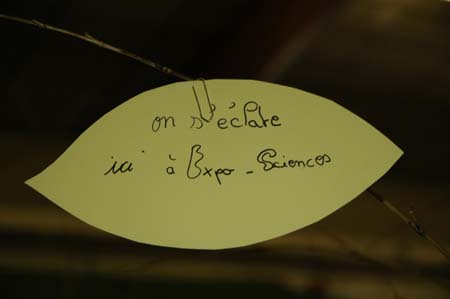 on s'éclate
ici à Expo-Sciences